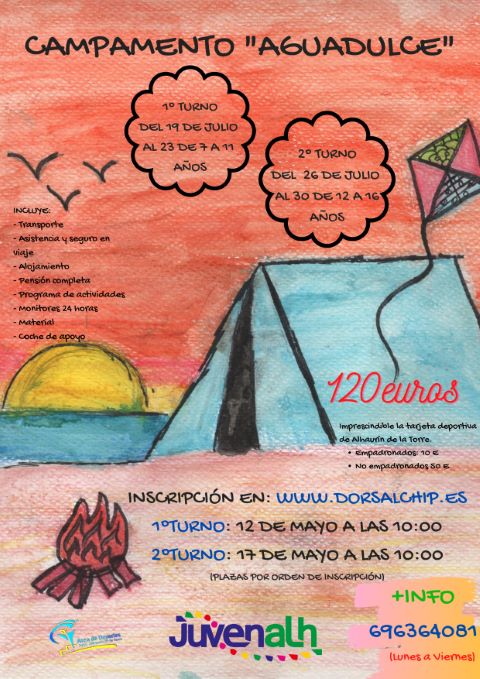 CAMPAMENTO "AGUADULCE"
1º TURNO
DEL 19 DE JULIO
AL 23 DE 7 A 11
AÑOS
2º TURNO
DEL 26 DE JULIO
AL 30 DE 12 A 16
AÑOS
INCLUYE:
- Transporte
- Asistencia y seguro en
viaje
- Alojamiento
- Pensión completa
- Programa de actividades
- Monitores 24 horas
- Material
- Coche de apoyo
120euros
Imprescindible la tarjeta deportiva
de Alhaurín de la Torre.
• Empadronados: 10 €
• No empadronados 50 €
INSCRIPCIÓN EN: WWW.DORSALCHIP.ES
1ºTURNO: 12 DE MAYO A LAS 10:00
2ºTURNO: 17 DE MAYO A LAS 10:00
(PLAZAS POR ORDEN DE INSCRIPCIÓN)
Área de Deportes
juvenalh
+INFO
696364081
(Lunes a Viernes)